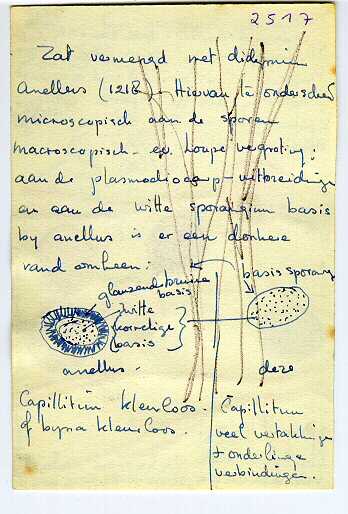 2517
Zat vermengd met didymium
anellus (1218) - Hiervan te onderscheid
microscopisch aan de sporen
macroscopisch - ev. loupe vergroting:
aan de plasmodiocarp - uitbreidingen
en aan de witte sporangium basis
by anellus is er een donkere
rand omheen:
glanzende bruine
basis
witte
korrelige
basis
basis sporang
anellus.
deze
Capillitium kleurloos.
of byna kleurloos.
Capillitium
veel vertakkingen
+ onderlinge
verbindingen.